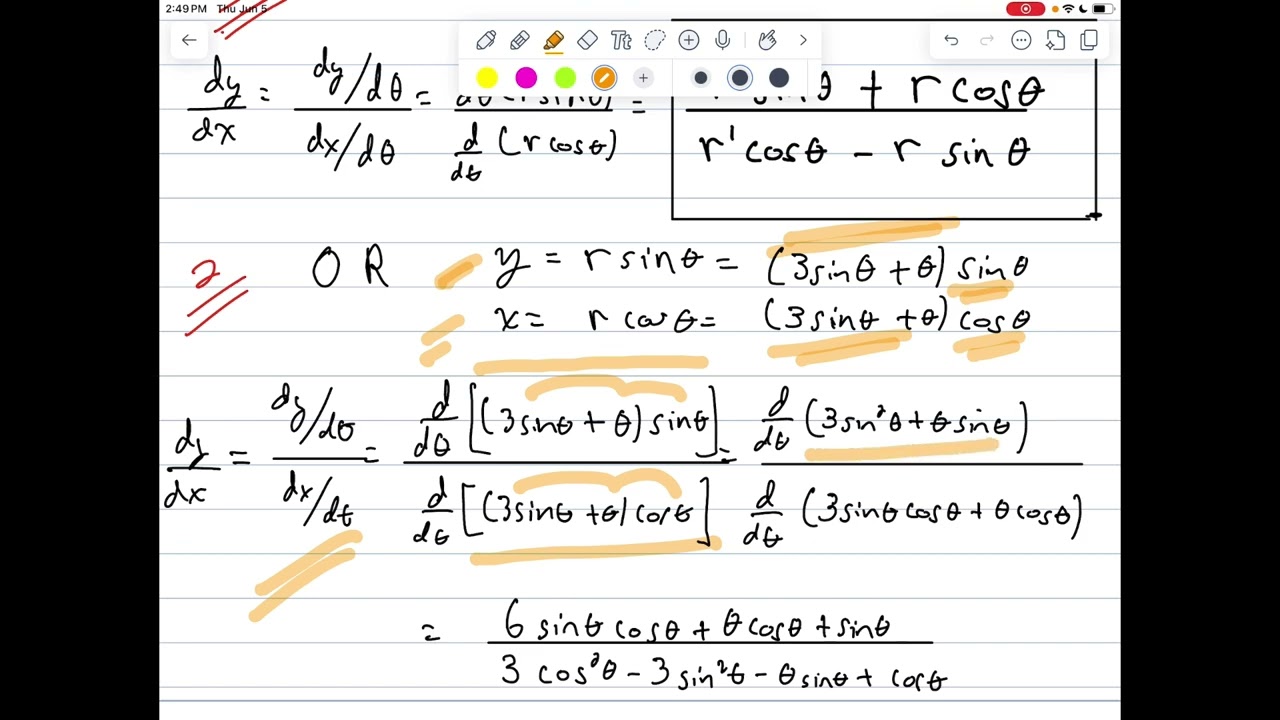 2:49 PM Thu Jun 5
Tt
dy/dx = (dy/dθ)/(dx/dθ) = (r sinθ)/(d/dθ (r cosθ)) = (sinθ + r cosθ)/(r' cosθ - r sinθ)
2 OR y = r sinθ = (3sinθ + θ) sinθ
x = r cosθ = (3sinθ + θ) cosθ
dy/dx = (dy/dθ)/(dx/dθ) = (d/dθ [(3sinθ + θ) sinθ])/(d/dθ [(3sinθ + θ) cosθ]) = (d/dθ (3sin²θ + θ sinθ))/(d/dθ (3sinθ cosθ + θ cosθ))
= (6 sinθ cosθ + θ cosθ + sinθ)/(3 cos²θ - 3 sin²θ - θ sinθ + cosθ)